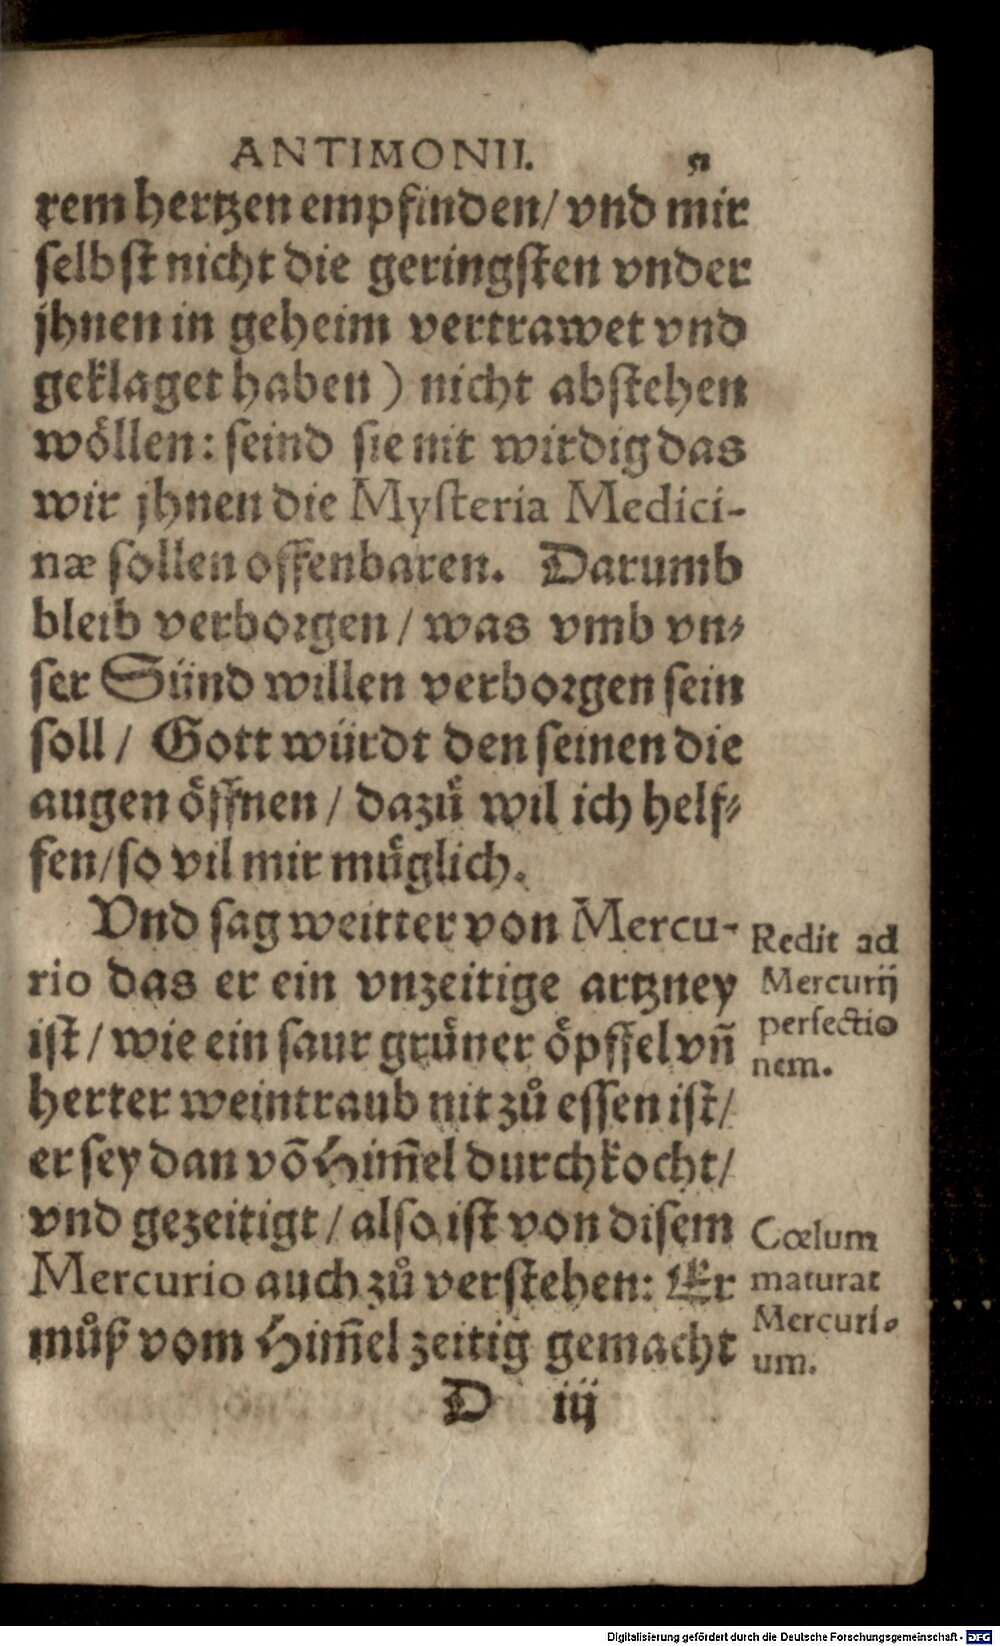 ANTIMONII.
rem hertzen empfinden/ vnd mir
selbst nicht die geringsten vnder
jhnen in geheim vertrawet vnd
geklaget haben) nicht abstehen
wöllen: seind sie nit wirdig das
wir jhnen die Mysteria Medici-
næ sollen offenbaren. Darumb
bleib verborgen / was vmb vn-
ser Sünd willen verborgen sein
soll / Gott würdt den seinen die
augen öffnen / dazů wil ich helf-
fen/ so vil mir müglich.
Vnd sag weitter von Mercu-
rio das er ein vnzeitige artzney
ist / wie ein saur grüner öpffel vñ
herter weintraub nit zů essen ist/
er sey dan võ Him̃el durchkocht/
vnd gezeitigt / also ist von disem
Mercurio auch zů verstehen: Er
můß vom Him̃el zeitig gemacht
D iij
Redit ad
Mercurij
perfectio
nem.
Cœlum
maturat
Mercuri-
um.
Digitalisierung gefördert durch die Deutsche Forschungsgemeinschaft - DFG